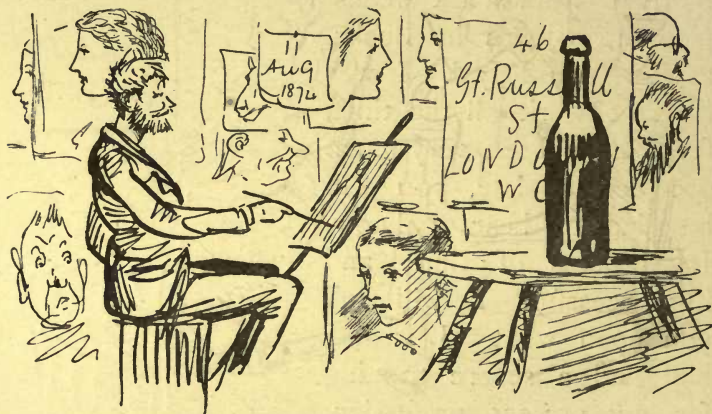 11
AUG
1874
46
Gt. Russell
St
LONDON
WC